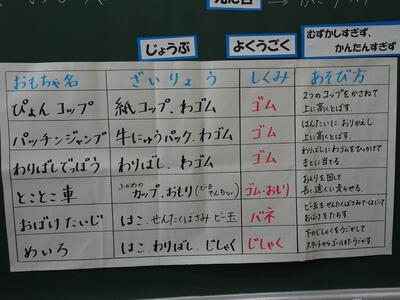 じょうぶ
よくうごく
むずかしすぎず、
かんたんすぎず
おもちゃ名 ざいりょう しくみ あそび方
ぴょんコップ 紙コップ、わゴム ゴム 2つのコップをかさねて
上に高くとばす。
パッチンジャンプ 牛にゅうパック、わゴム ゴム はんたいにおりかえし
上に高くとばす。
わりばしでっぽう わりばし、わゴム ゴム わりばしにわゴムをひっかけて
まとに当てる。
とことこ車 カップ、おもり(ビー玉 でんち ゴム・おもり おもりを回して
長く遠くに走らせる。
おばけたいじ はこ、せんたくばさみ ビー玉 バネ ビー玉をせんたくばさみではじいて
おばけをたおす。
めいろ はこ、わりばし、じしゃく じしゃく 下のじしゃくをうごかして
スタートからゴールまでうごかす。